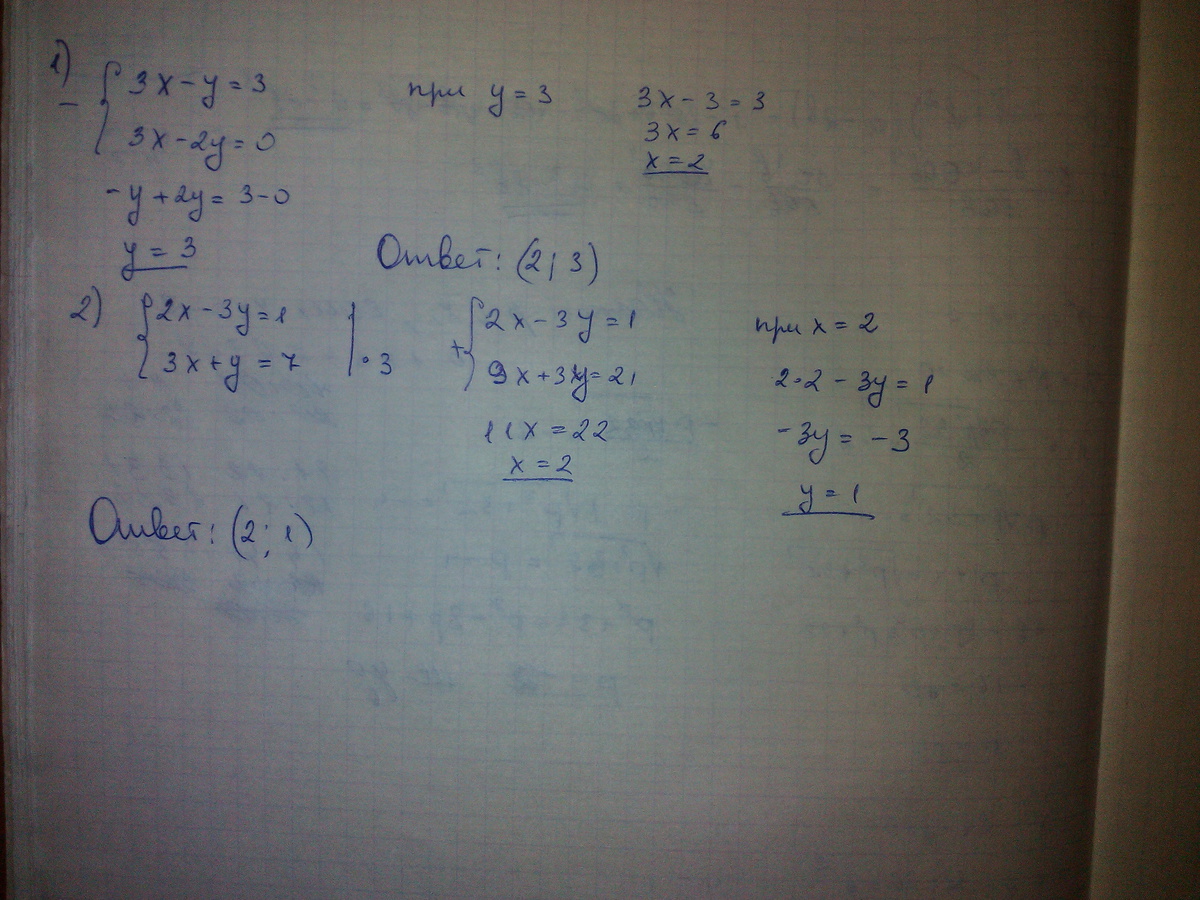 1)
- { 3x - y = 3
3x - 2y = 0
-y + 2y = 3 - 0
y = 3
при y = 3
3x - 3 = 3
3x = 6
x = 2
Ответ: (2; 3)
2) { 2x - 3y = 1
3x + y = 7 | · 3
+ { 2x - 3y = 1
9x + 3y = 21
11x = 22
x = 2
при x = 2
2·2 - 3y = 1
-3y = -3
y = 1
Ответ: (2; 1)